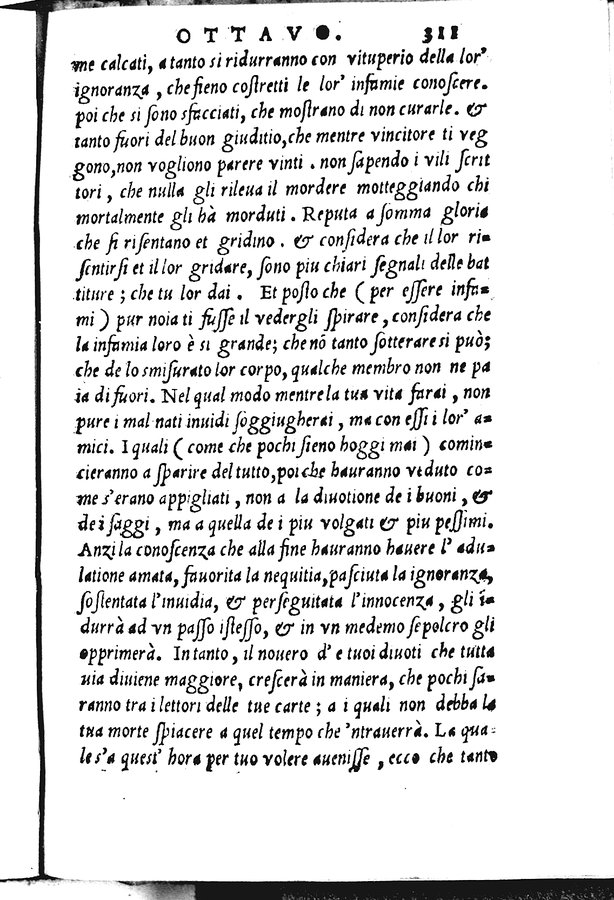 OTTAVO. 311
me calcati, a tanto si ridurranno con vituperio della lor'
ignoranza, che fieno costretti le lor' infamie conoscere.
poi che si sono sfacciati, che mostrano di non curarle. &
tanto fuori del buon giuditio, che mentre vincitore ti veg
gono, non vogliono parere vinti. non sapendo i vili scrit
tori, che nulla gli rileua il mordere motteggiando chi
mortalmente gli hà morduti. Reputa a somma gloria
che si risentano et gridino. & considera che il lor ri-
sentirsi et il lor gridare, sono piu chiari segnali delle bat
titure; che tu lor dai. Et posto che (per essere infa-
mi) pur noia ti fusse il vedergli spirare, considera che
la infamia loro è si grande; che nō tanto sotterrare si può;
che de lo smisurato lor corpo, qualche membro non ne pa
ia di fuori. Nel qual modo mentre la tua vita farai, non
pure i mal nati inuidi soggiugherai, ma con essi i lor' a-
mici. I quali (come che pochi sieno hoggi mai) comin-
cieranno a sparire del tutto, poi che hauranno veduto co-
me s'erano appigliati, non a la diuotione de i buoni, &
de i saggi, ma a quella de i piu volgati & piu pessimi.
Anzi la conoscenza che alla fine hauranno hauere l' adu-
latione amata, fauorita la nequitia, pasciuta la ignoranza,
sostentata l'inuidia, & perseguitata l'innocenza, gli in-
durrà ad vn passo istesso, & in vn medemo sepolcro gli
opprimerà. In tanto, il nouero d' e tuoi diuoti che tutta
uia diuiene maggiore, crescerà in maniera, che pochi sa-
ranno tra i lettori delle tue carte; a i quali non debba la
tua morte spiacere a quel tempo che 'ntrauerrà. La qua-
le s'a quest' hora per tuo volere auenisse, ecco che tanto